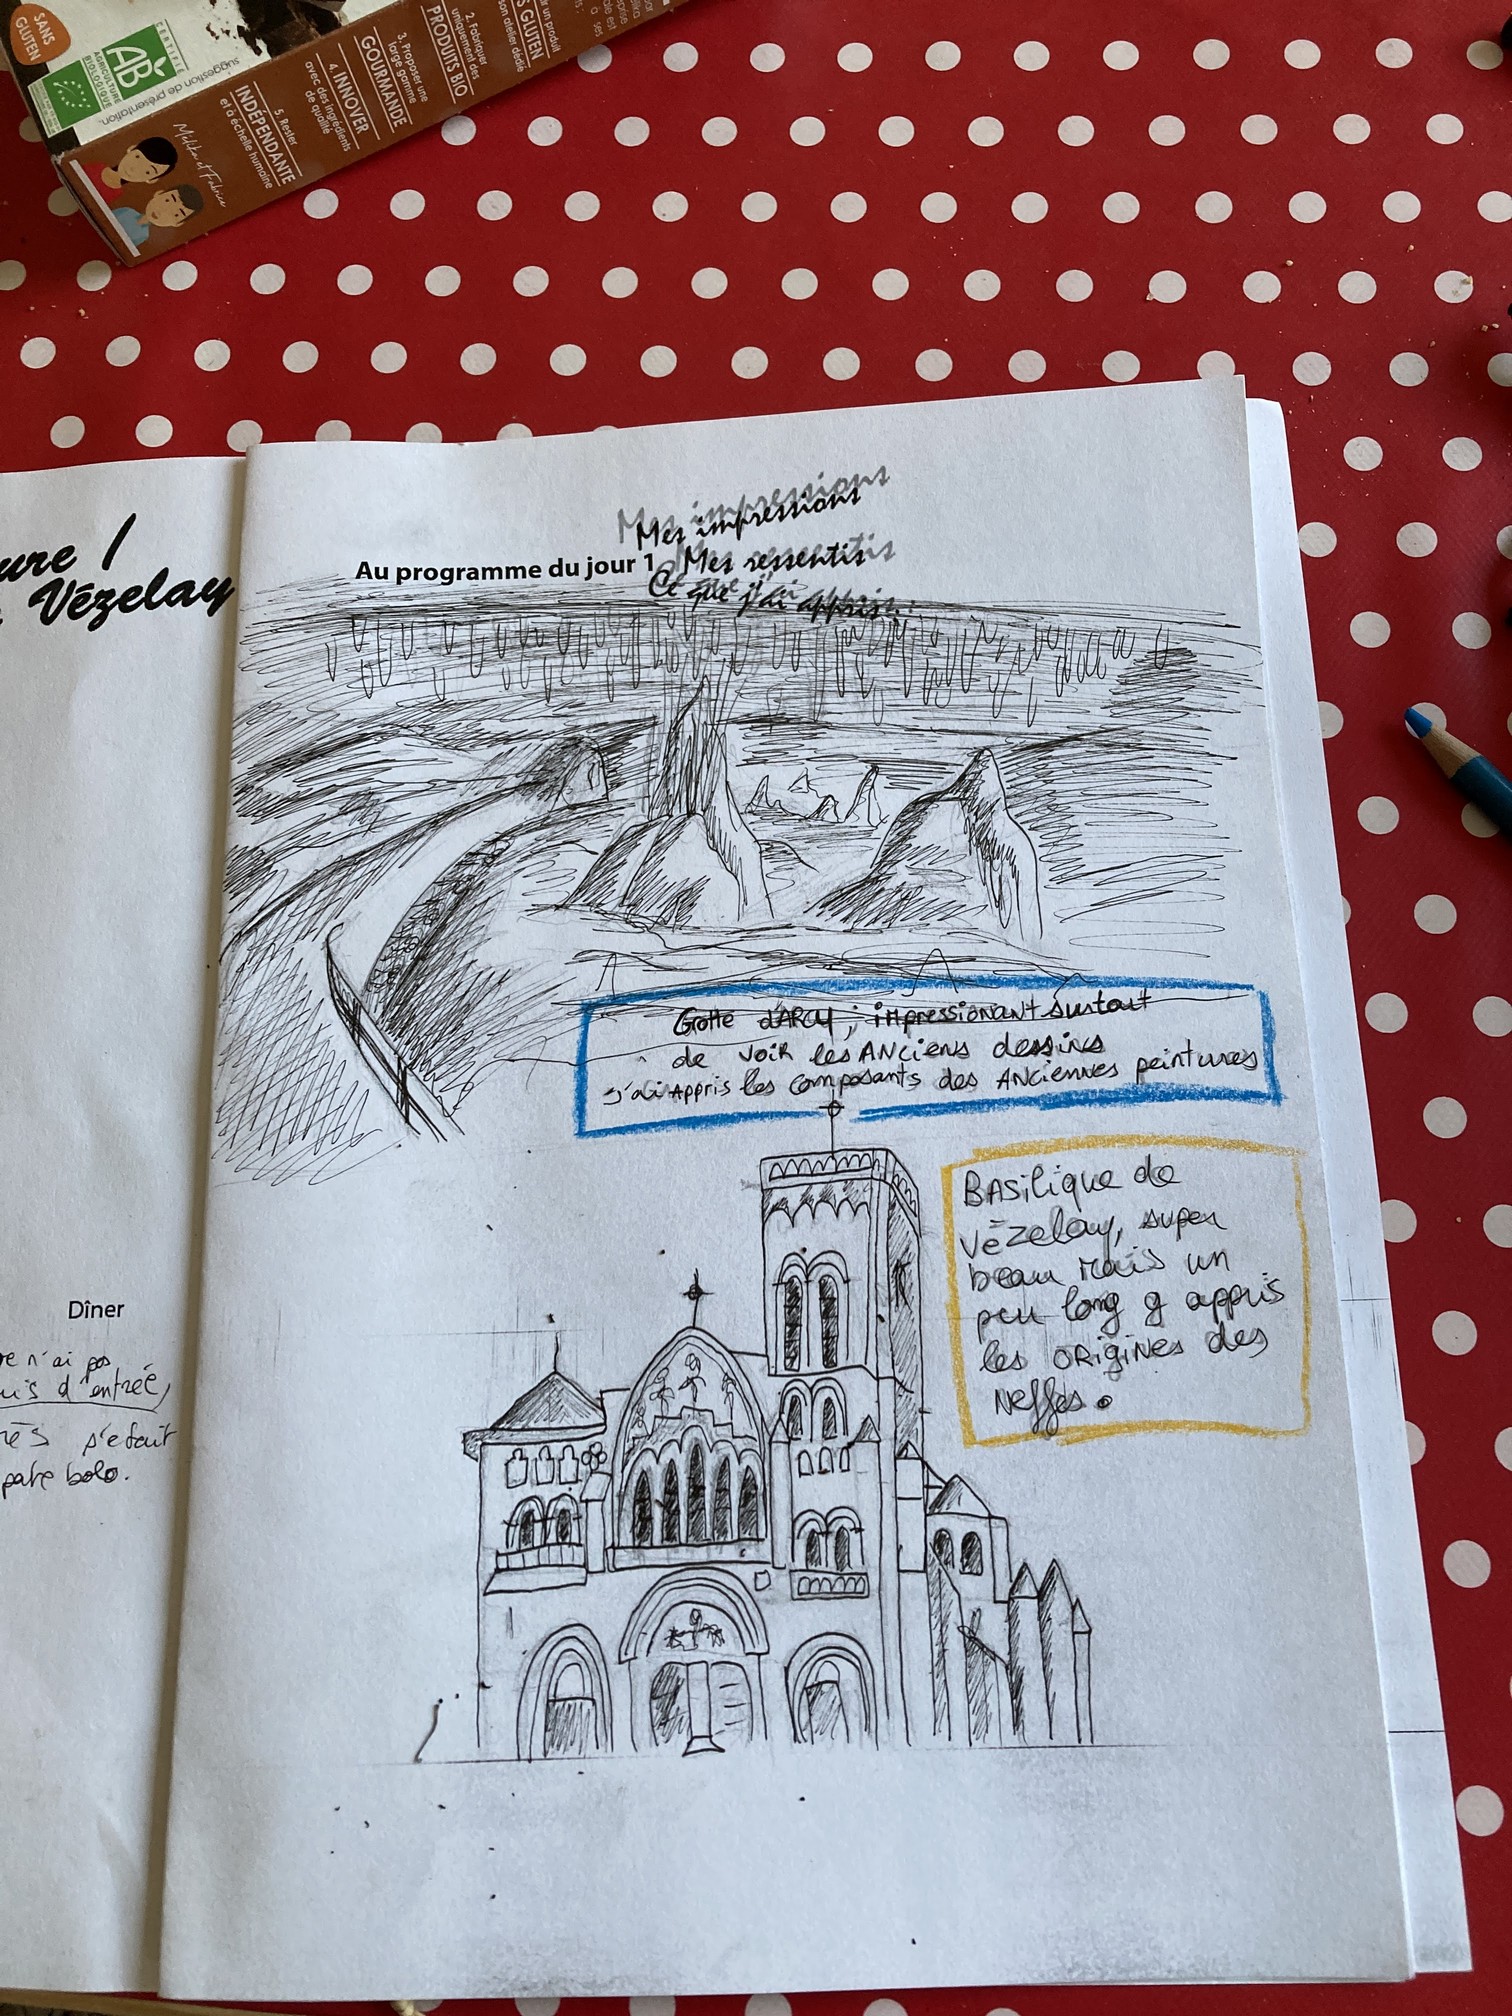 SANS
GLUTEN
CERTIFIÉ
AB
AGRICULTURE
BIOLOGIQUE
suggestion de présentation.
Fabrice
5. Rester
INDÉPENDANTE
et à échelle humaine
4. INNOVER
avec des ingrédients
de qualité
3. Proposer une
large gamme
GOURMANDE
2. Fabriquer
uniquement des
PRODUITS BIO
un produit
S GLUTEN
son atelier dédié
ure /
Vézelay
Dîner
re n'ai pas
uis d'entrée,
rès s'etait
pate bolo.
Mes impressions
Au programme du jour 1
Mes ressentis
Ce que j'ai appris :
Grotte d'ARCY ; impressionant surtout
de voir les ANciens dessins
j'ai Appris les composants des ANciennes peintures
BASilique de
Vézelay, super
beau mais un
peu long g appris
les ORIGINES des
Neffes.